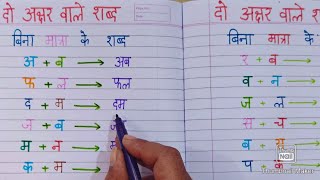 दो अक्षर वाले शब्द
बिना मात्रा के शब्द
अ + ब → अब
फ + ल → फल
द + म → दम
ज + ब →
म + न →
क + म →
दो अक्षर वाले
बिना मात्रा के
र + ब
व + न
ज + ल
स + च
ब + स
प +